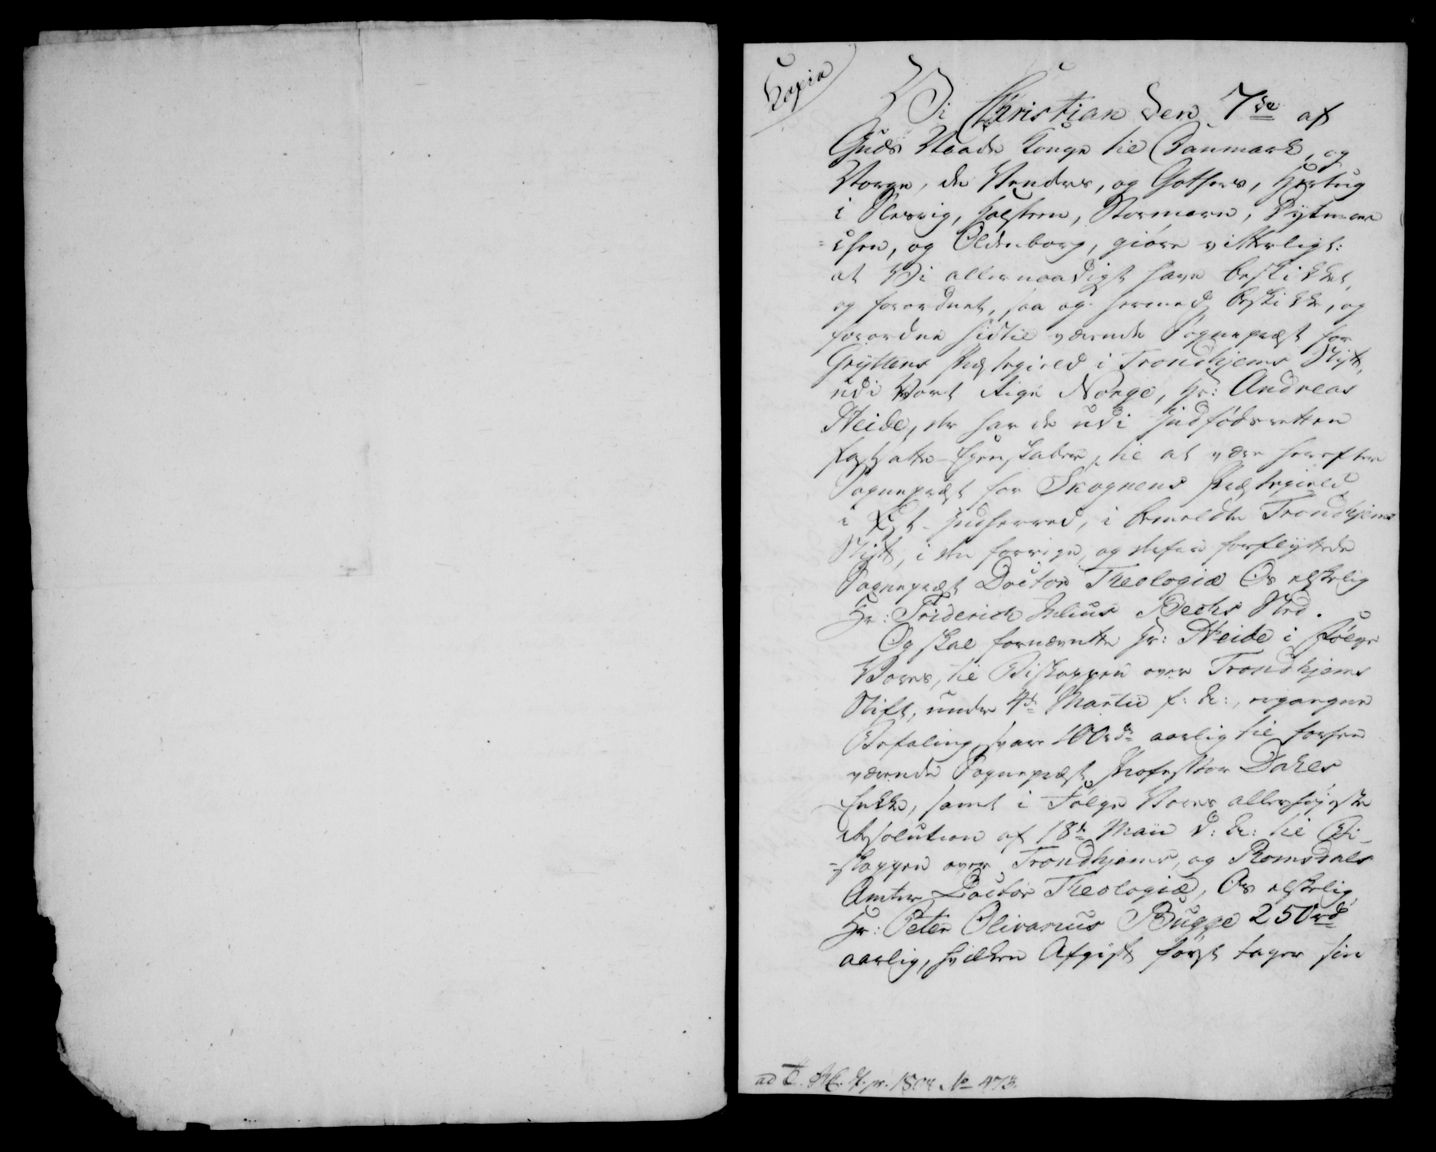 Copia
Vi Christian den 7de af
Guds Naade Konge til Danmark, og
Norge, de Venders, og Gothers, Hertug
i Slesvig, Holsteen, Stormarn, Dytmar-
-sken, og Oldenborg, giøre vitterligt:
at Vi allernaadigst have beskikket,
og forordnet, saa og hermed beskikke, og
forordne hidtil værende Sognepræst for
Gryttens Præstegield i Trondhjems Stift,
udi Vort Rige Norge, Hr: Andreas
Heide, der har de udi Indfødsretten
fastsatte Egenskaber, til at være herefter
Sognepræst for Skognens Præstegield
i Indherred, i bemeldte Trondhjems
Stift, i den forrige, og derfra forflyttede
Sognepræst Doctor Theologiæ Os elskelig
Hr: Friderich Julius Bechs Sted.
Og skal fornævnte Hr: Heide i Følge
Vores, til Biskoppen over Trondhjems
Stift, under 4de Martii f: A:, ergangne
Befaling, svare 100rd aarlig til forhen
værende Sognepræst Professor Dahls
Enke, samt i Følge Vores allerhøieste
Resolution af 18de Maii d: A: til Bi-
-skoppen over Trondhjems, og Romsdals
Amter Doctor Theologiæ, Os elskelig
Hr: Peter Olivarius Bugge 250rd
aarlig, hvilken Afgift først tager sin